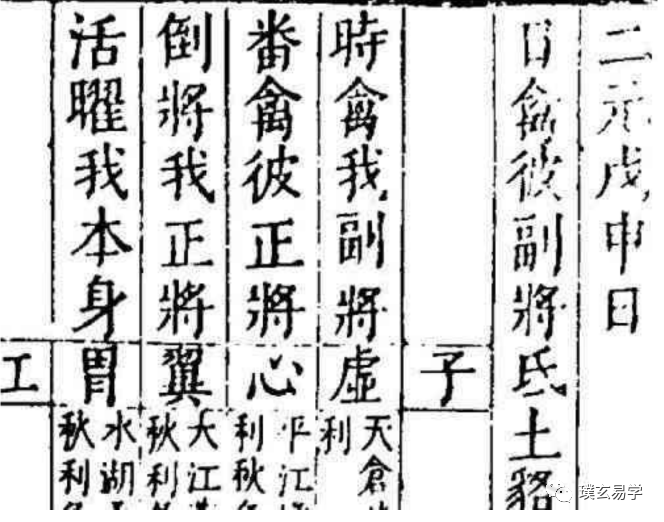 二元戊申日
日禽彼副將氐土貉
子
時禽我副將虛
天倉
利
番禽彼正將心
平江
利秋
倒將我正將翼
大江
秋利
活曜我本身胃
水湖
秋利
璞玄易学